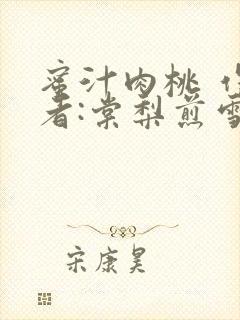 蜜汁肉桃
者:棠梨煎雪
宋康昊